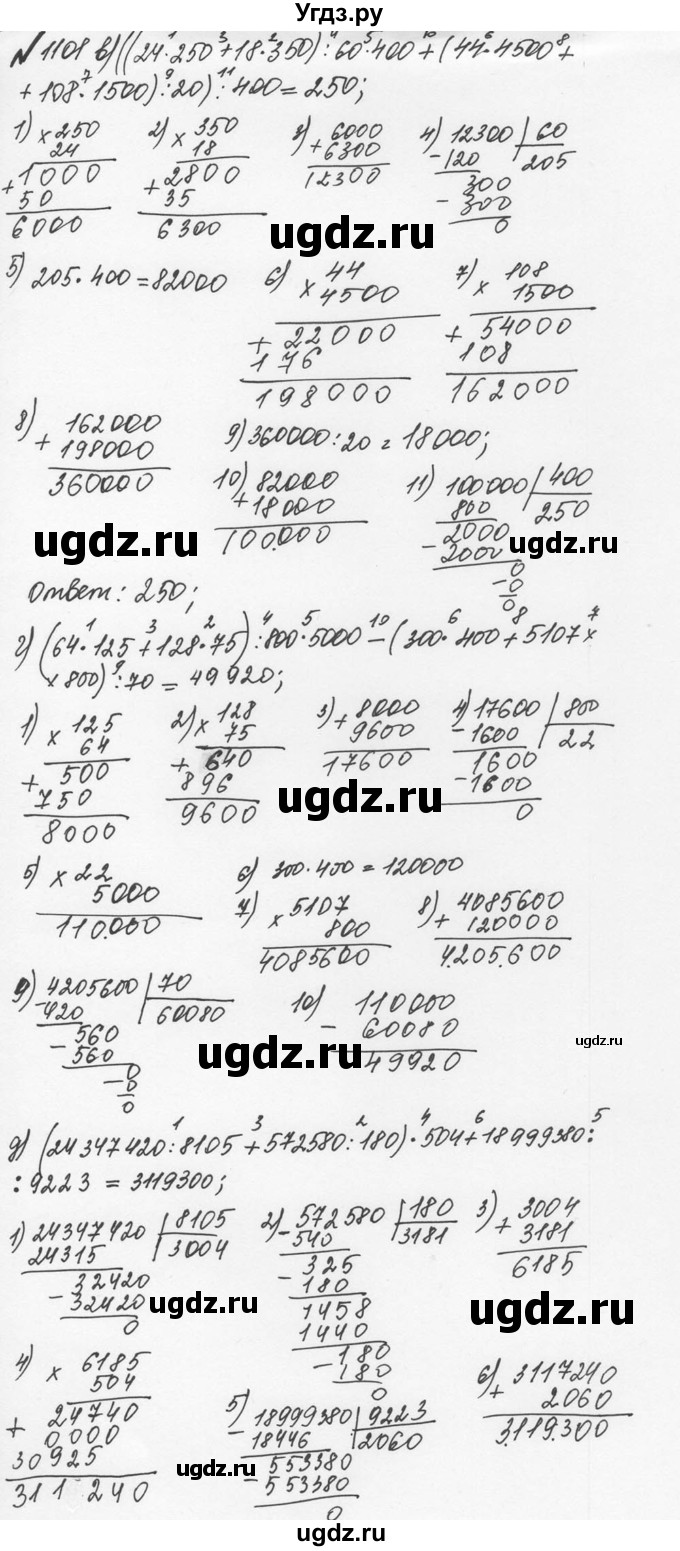 Угдз.ру
№1108 в) ((24·250+18·350):60·400+(44·4500+
+108·1500):20):400=250;
1) × 250
24
+ 1000
50
6000
2) × 350
18
+ 2800
35
6300
3) + 6000
6300
12300
4) 12300 | 60
- 120 | 205
300
- 300
0
ugdz.ru
ugdz.ru
5) 205·400=82000
6) × 44
4500
+ 22000
176
198000
7) × 108
1500
+ 54000
108
162000
8) + 162000
198000
360000
9) 360000:20=18000;
10) + 82000
18000
100.000
11) 100000 | 400
800 | 250
2000
- 2000
0
- 0
0
ugdz.ru
ugdz.ru
Ответ: 250;
г) (64·125+128·75):800·5000-(300·400+5107×
×800):70=49920;
1) × 125
64
+ 500
750
8000
2) × 128
75
+ 640
896
9600
3) + 8000
9600
17600
4) 17600 | 800
- 1600 | 22
1600
- 1600
0
ugdz.ru
ugdz.ru
5) × 22
5000
110.000
6) 300·400=120000
7) × 5107
800
4085600
8) + 4085600
120000
4.205.600
9) 4205600 | 70
- 420 | 60080
560
- 560
0
- 0
0
10) - 110000
60080
49920
ugdz.ru
ugdz.ru
ugdz.ru
д) (24347420:8105+572580:180)·504+18999380:
:9223=3119300;
1) 24347420 | 8105
24315 | 3004
32420
- 32420
0
2) 572580 | 180
- 540 | 3181
325
- 180
1458
1440
180
- 180
0
3) + 3004
3181
6185
ugdz.ru
ugdz.ru
4) × 6185
504
+ 24740
0000
30925
311 240
5) 18999380 | 9223
18446 | 2060
553380
- 553380
0
6) + 3117240
2060
3.119.300
ugdz.ru
ugdz.ru
ugdz.ru